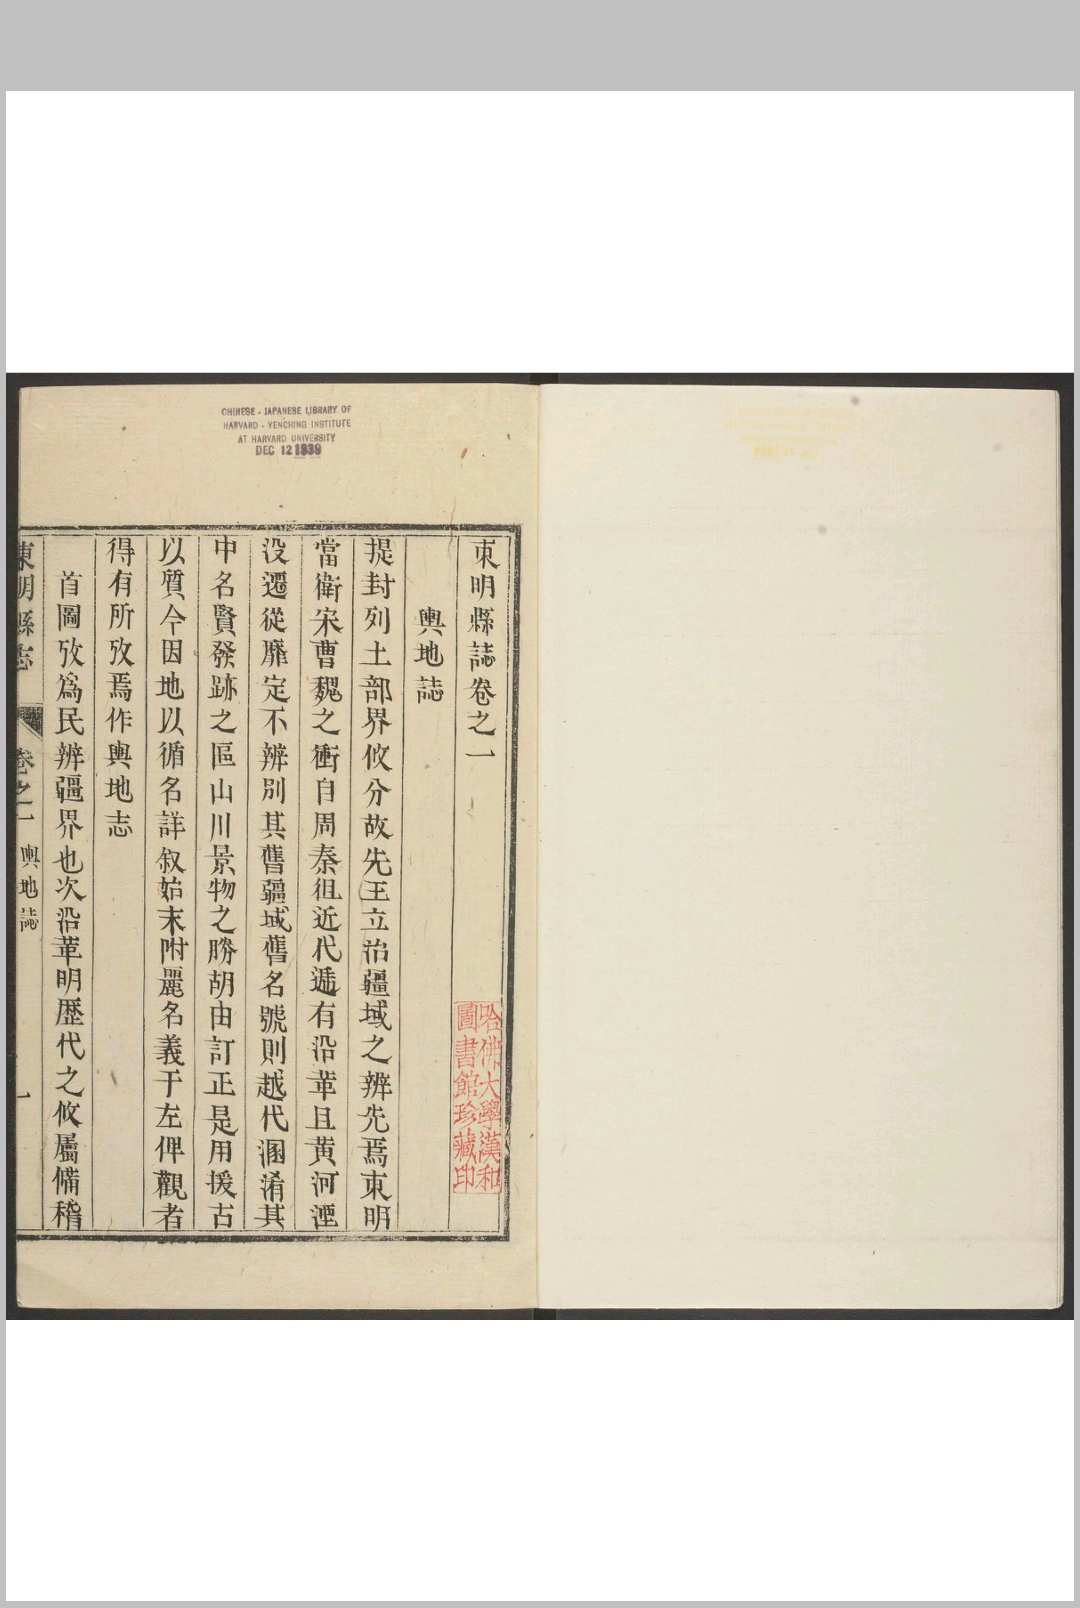 CHINESE - JAPANESE LIBRARY OF
HARVARD - YENCHING INSTITUTE
AT HARVARD UNIVERSITY
DEC 12 1939
東明縣誌卷之一
輿地誌
提封列土部界攸分故先王立治疆域之辨先焉東明
當衛宋曹魏之衝自周秦徂近代遞有沿革且黃河湮
没遷從靡定不辨别其舊疆域舊名號則越代溷淆其
中名賢發跡之區山川景物之勝胡由訂正是用援古
以質今因地以循名詳叙始末附麗名義于左俾觀者
得有所攷焉作輿地志
首圖攷爲民辨疆界也次沿革明歷代之攸屬備稽
東明縣志 卷之一 輿地誌 一
哈佛大學漢和
圖書館珍藏印